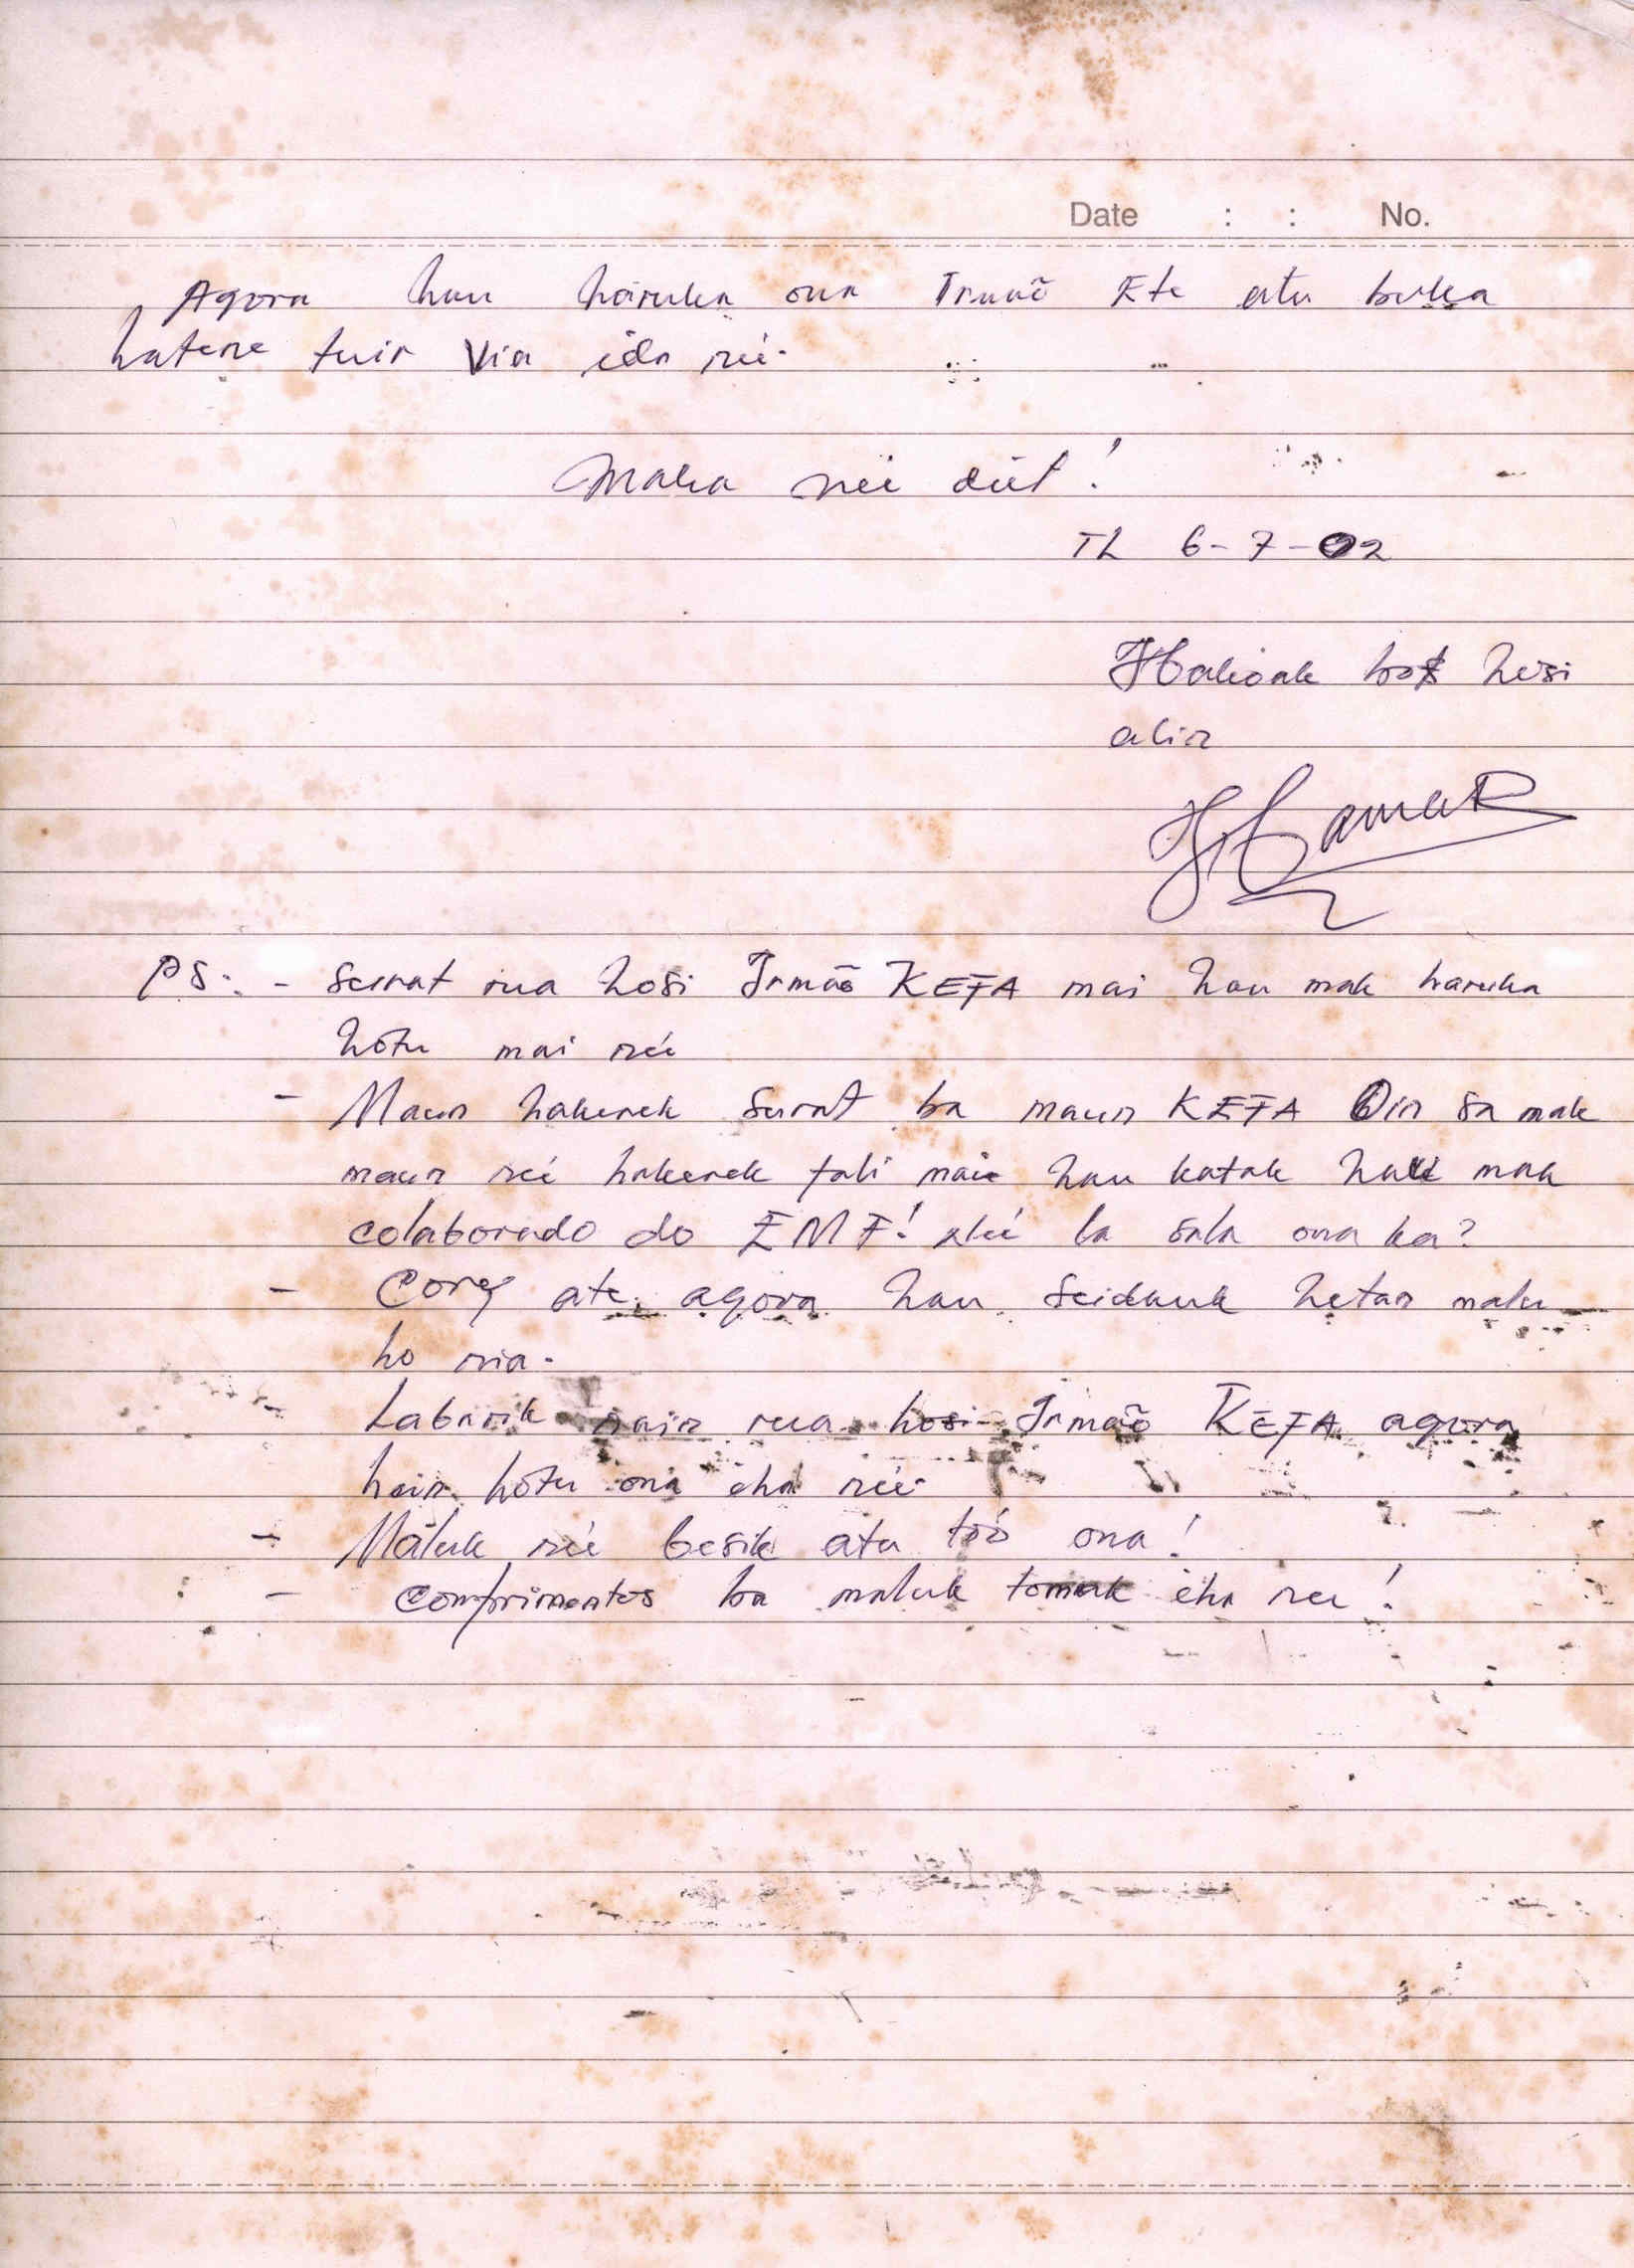 Date : : No.
Agora hau haruka ona Irmaõ Ete atu buka
hatene tuir Via ida neé.
Maka neé deit!
TL 6-7-02
Hakoak bot hosi
alin
Hamar
PS: - Surat rua hosi Irmaõ KEFA mai hau mak haruka
hotu mai neé
- Maun hakerek surat ba maun KEFA sa mak
maun neé hakerek fali mai hau katak hau mak
colaborado do EMF! neé la sala ona ka?
- ate agora hau seidauk hetan malu
ho nia.
- Labarik nain rua hosi Irmaõ KEFA agora
hotu ona iha neé.
- Maluk neé besik atu toó ona!
- Comprimentos ba maluk tomak iha neé!